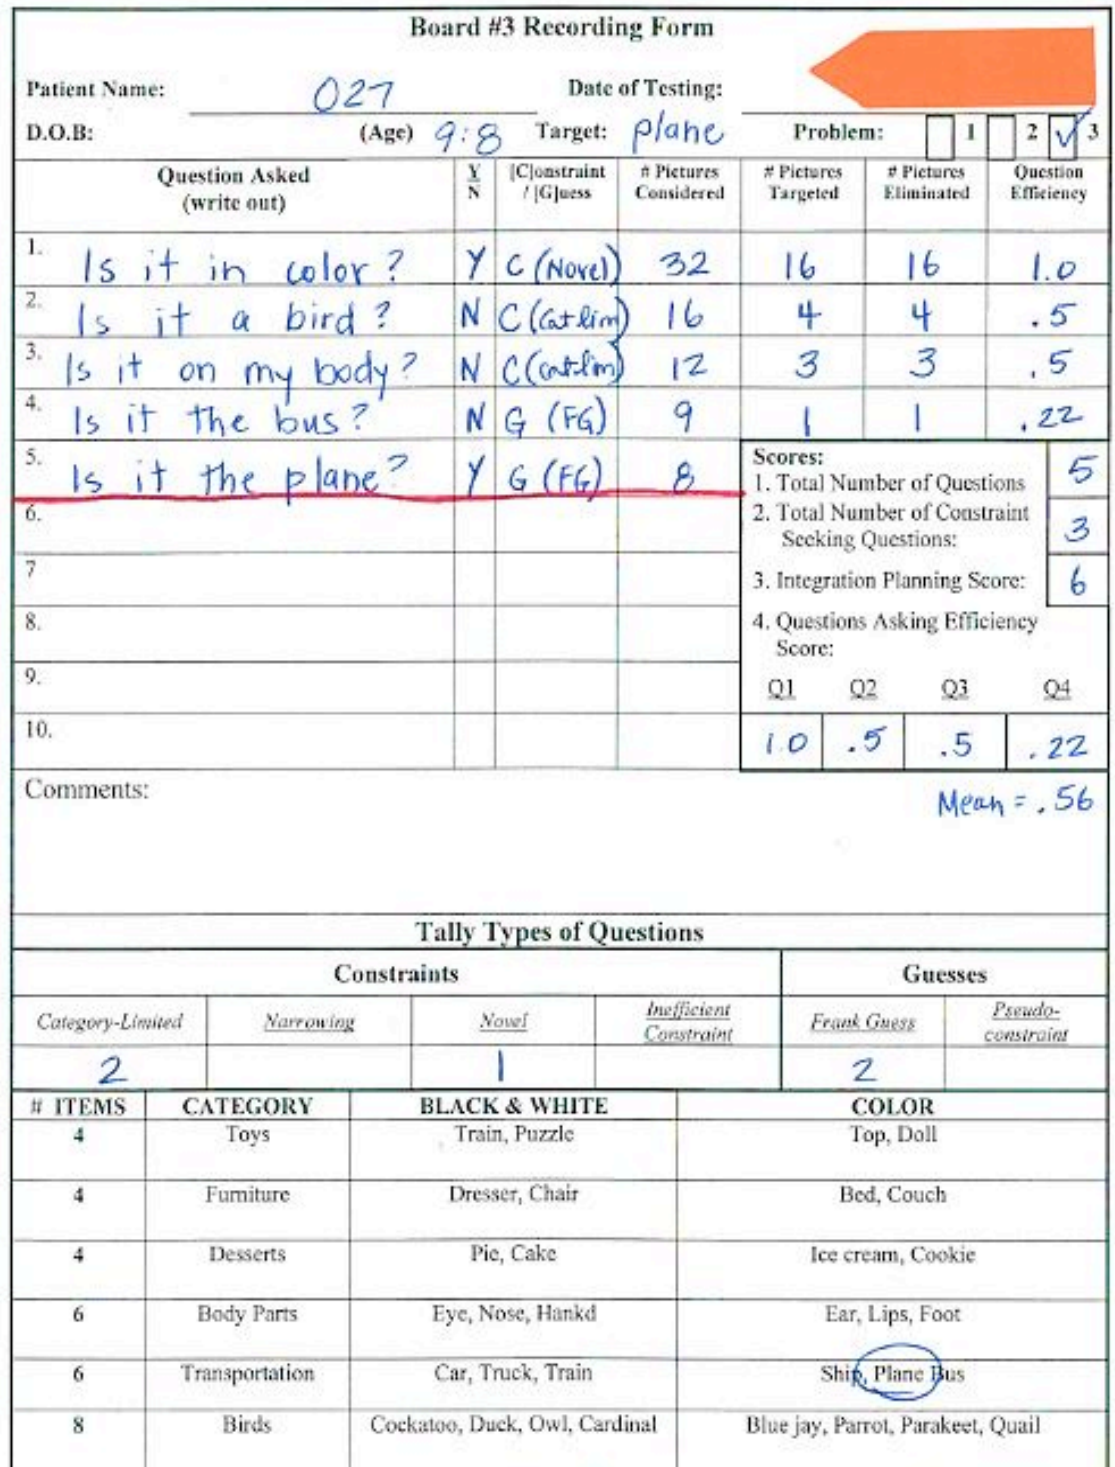 Board #3 Recording Form
Patient Name: 027 Date of Testing:
D.O.B: (Age) 9:8 Target: plane Problem: 1 2 ✓ 3
Question Asked (write out) Y/N [C]onstraint / [G]uess # Pictures Considered # Pictures Targeted # Pictures Eliminated Question Efficiency
1. Is it in color? Y C (Novel) 32 16 16 1.0
2. Is it a bird? N C (Cat lim) 16 4 4 .5
3. Is it on my body? N C (cat-lim) 12 3 3 .5
4. Is it the bus? N G (FG) 9 1 1 .22
5. Is it the plane? Y G (FG) 8
6.
7
8.
9.
10.
Scores:
1. Total Number of Questions 5
2. Total Number of Constraint
Seeking Questions: 3
3. Integration Planning Score: 6
4. Questions Asking Efficiency
Score:
Q1 Q2 Q3 Q4
1.0 .5 .5 .22
Comments:
Mean = .56
Tally Types of Questions
Constraints Guesses
Category-Limited Narrowing Novel Inefficient Constraint Frank Guess Pseudo-constraint
2 1 2
# ITEMS CATEGORY BLACK & WHITE COLOR
4 Toys Train, Puzzle Top, Doll
4 Furniture Dresser, Chair Bed, Couch
4 Desserts Pie, Cake Ice cream, Cookie
6 Body Parts Eye, Nose, Hankd Ear, Lips, Foot
6 Transportation Car, Truck, Train Ship, Plane Bus
8 Birds Cockatoo, Duck, Owl, Cardinal Blue jay, Parrot, Parakeet, Quail